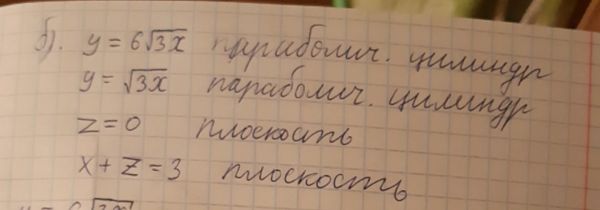 б). y = 6√3x параболич. цилиндр
y = √3x параболич. цилиндр
z = 0 плоскость
x + z = 3 плоскость